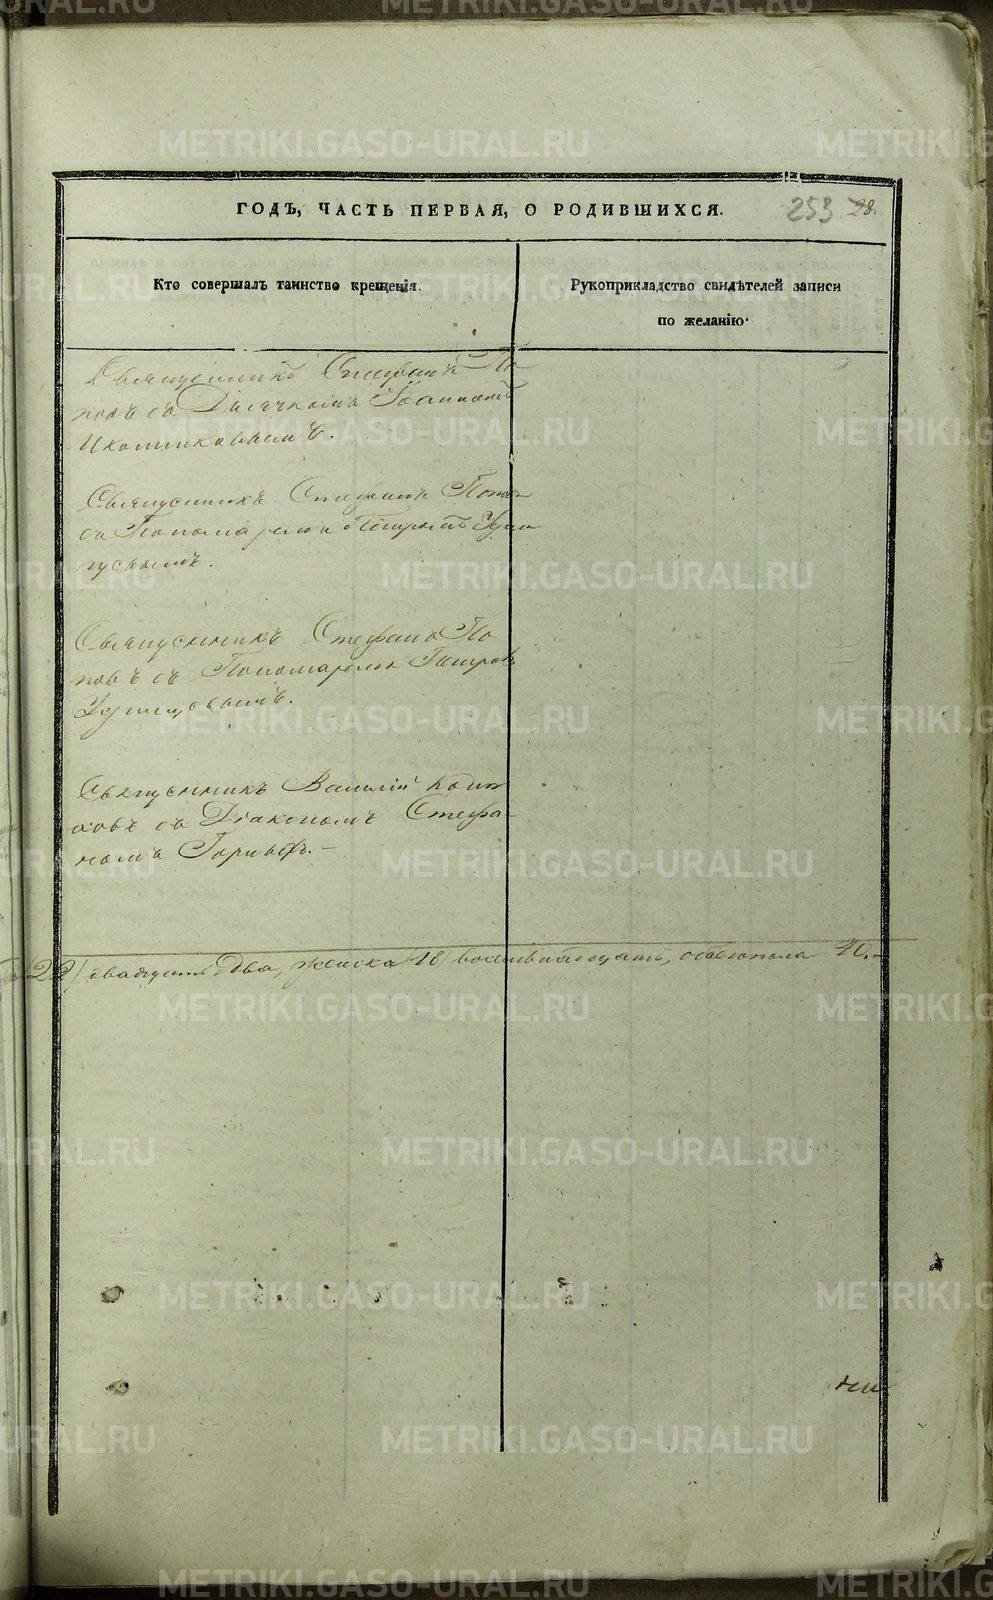 ГОДЪ, ЧАСТЬ ПЕРВАЯ, О РОДИВШИХСЯ.
253 28.
Кто совершалъ таинство крещенія.
Рукоприкладство свидѣтелей записи
по желанію.
Священникъ Стефанъ По
повъ съ Дьячкомъ Іоанномъ
Иконниковымъ.
Священникъ Стефанъ Попов
съ Пономаремъ Петромъ
Священникъ Стефанъ По
повъ съ Пономаремъ Петромъ
Священникъ Василій
ковъ съ Діакономъ Стефа
номъ
22) двадцать два, женска 18) восемнадцать, обоего пола 40.
METRIKI.GASO-URAL.RU